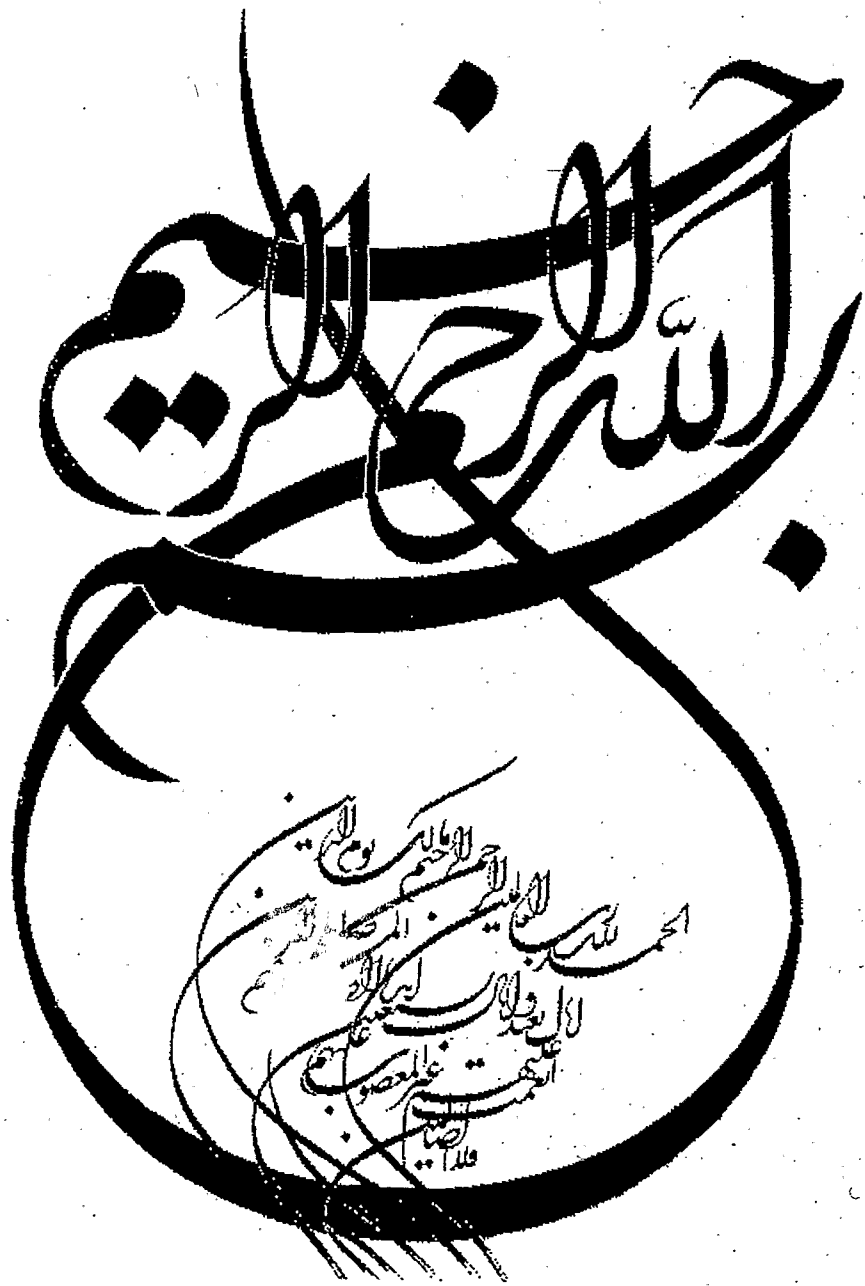 بسم الله الرحمن الرحيم
الحمد لله رب العالمين
الرحمن الرحيم
مالك يوم الدين
اياك نعبد و اياك نستعين
اهدنا
الصراط المستقيم
صراط الذين
انعمت عليهم
غير المغضوب عليهم
ولا الضالين